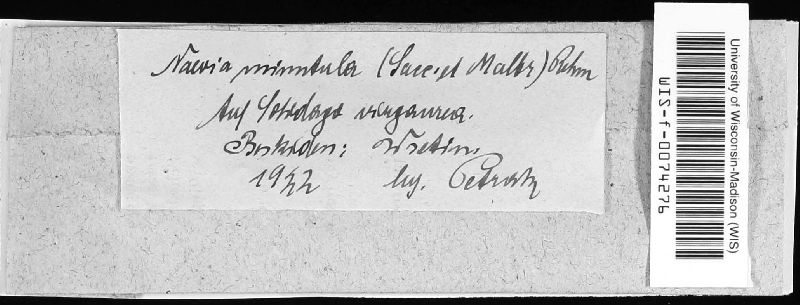 Naevia minutula (Sacc. et Malbr) Rehm
Auf Solidago virgaurea.
Beskiden: Wsetin.
1922 leg. Petrak
University of Wisconsin-Madison (WIS)
WIS-f-0074276